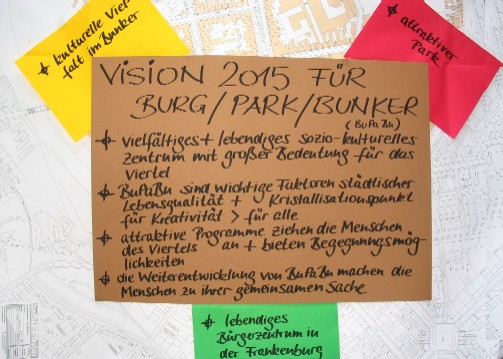 kulturelle Viel-
falt im Bunker
attraktiver
Park
VISION 2015 FÜR
BURG/PARK/BUNKER
(BuPaBu)
vielfältiges + lebendiges sozio-kulturelles
Zentrum mit großer Bedeutung für das
Viertel
BuPaBu sind wichtige Faktoren städtischer
Lebensqualität + Kristallisationspunkt
für Kreativität > für alle
attraktive Programme ziehen die Menschen
des Viertels an + bieten Begegnungsmög-
lichkeiten
die Weiterentwickelung von BuPaBu machen die
Menschen zu ihrer gemeinsamen Sache
lebendiges
Bürgerzentrum in
der Frankenburg